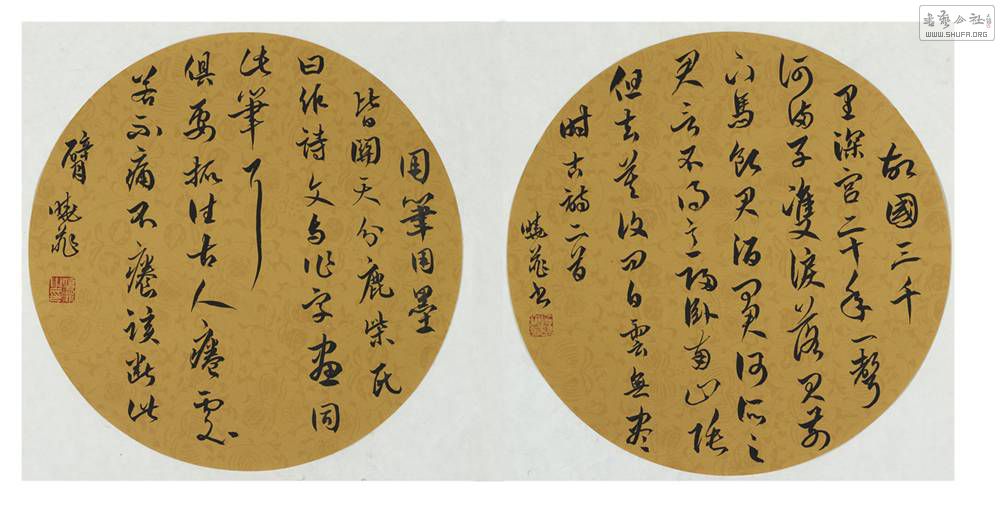 故國三千
里深宮二十年一聲
河滿子雙淚落君前
下馬飲君酒問君何所之
君言不得意歸臥南山陲
但去莫復問白雲無盡
時古詩二首
曉菲書
用筆用墨
皆關天分鹿柴氏
曰作詩文與作字畫同
此筆耳
俱要抓住古人癢處
若不痛不癢該斷此
臂
曉菲
書藝公社
WWW.SHUFA.ORG